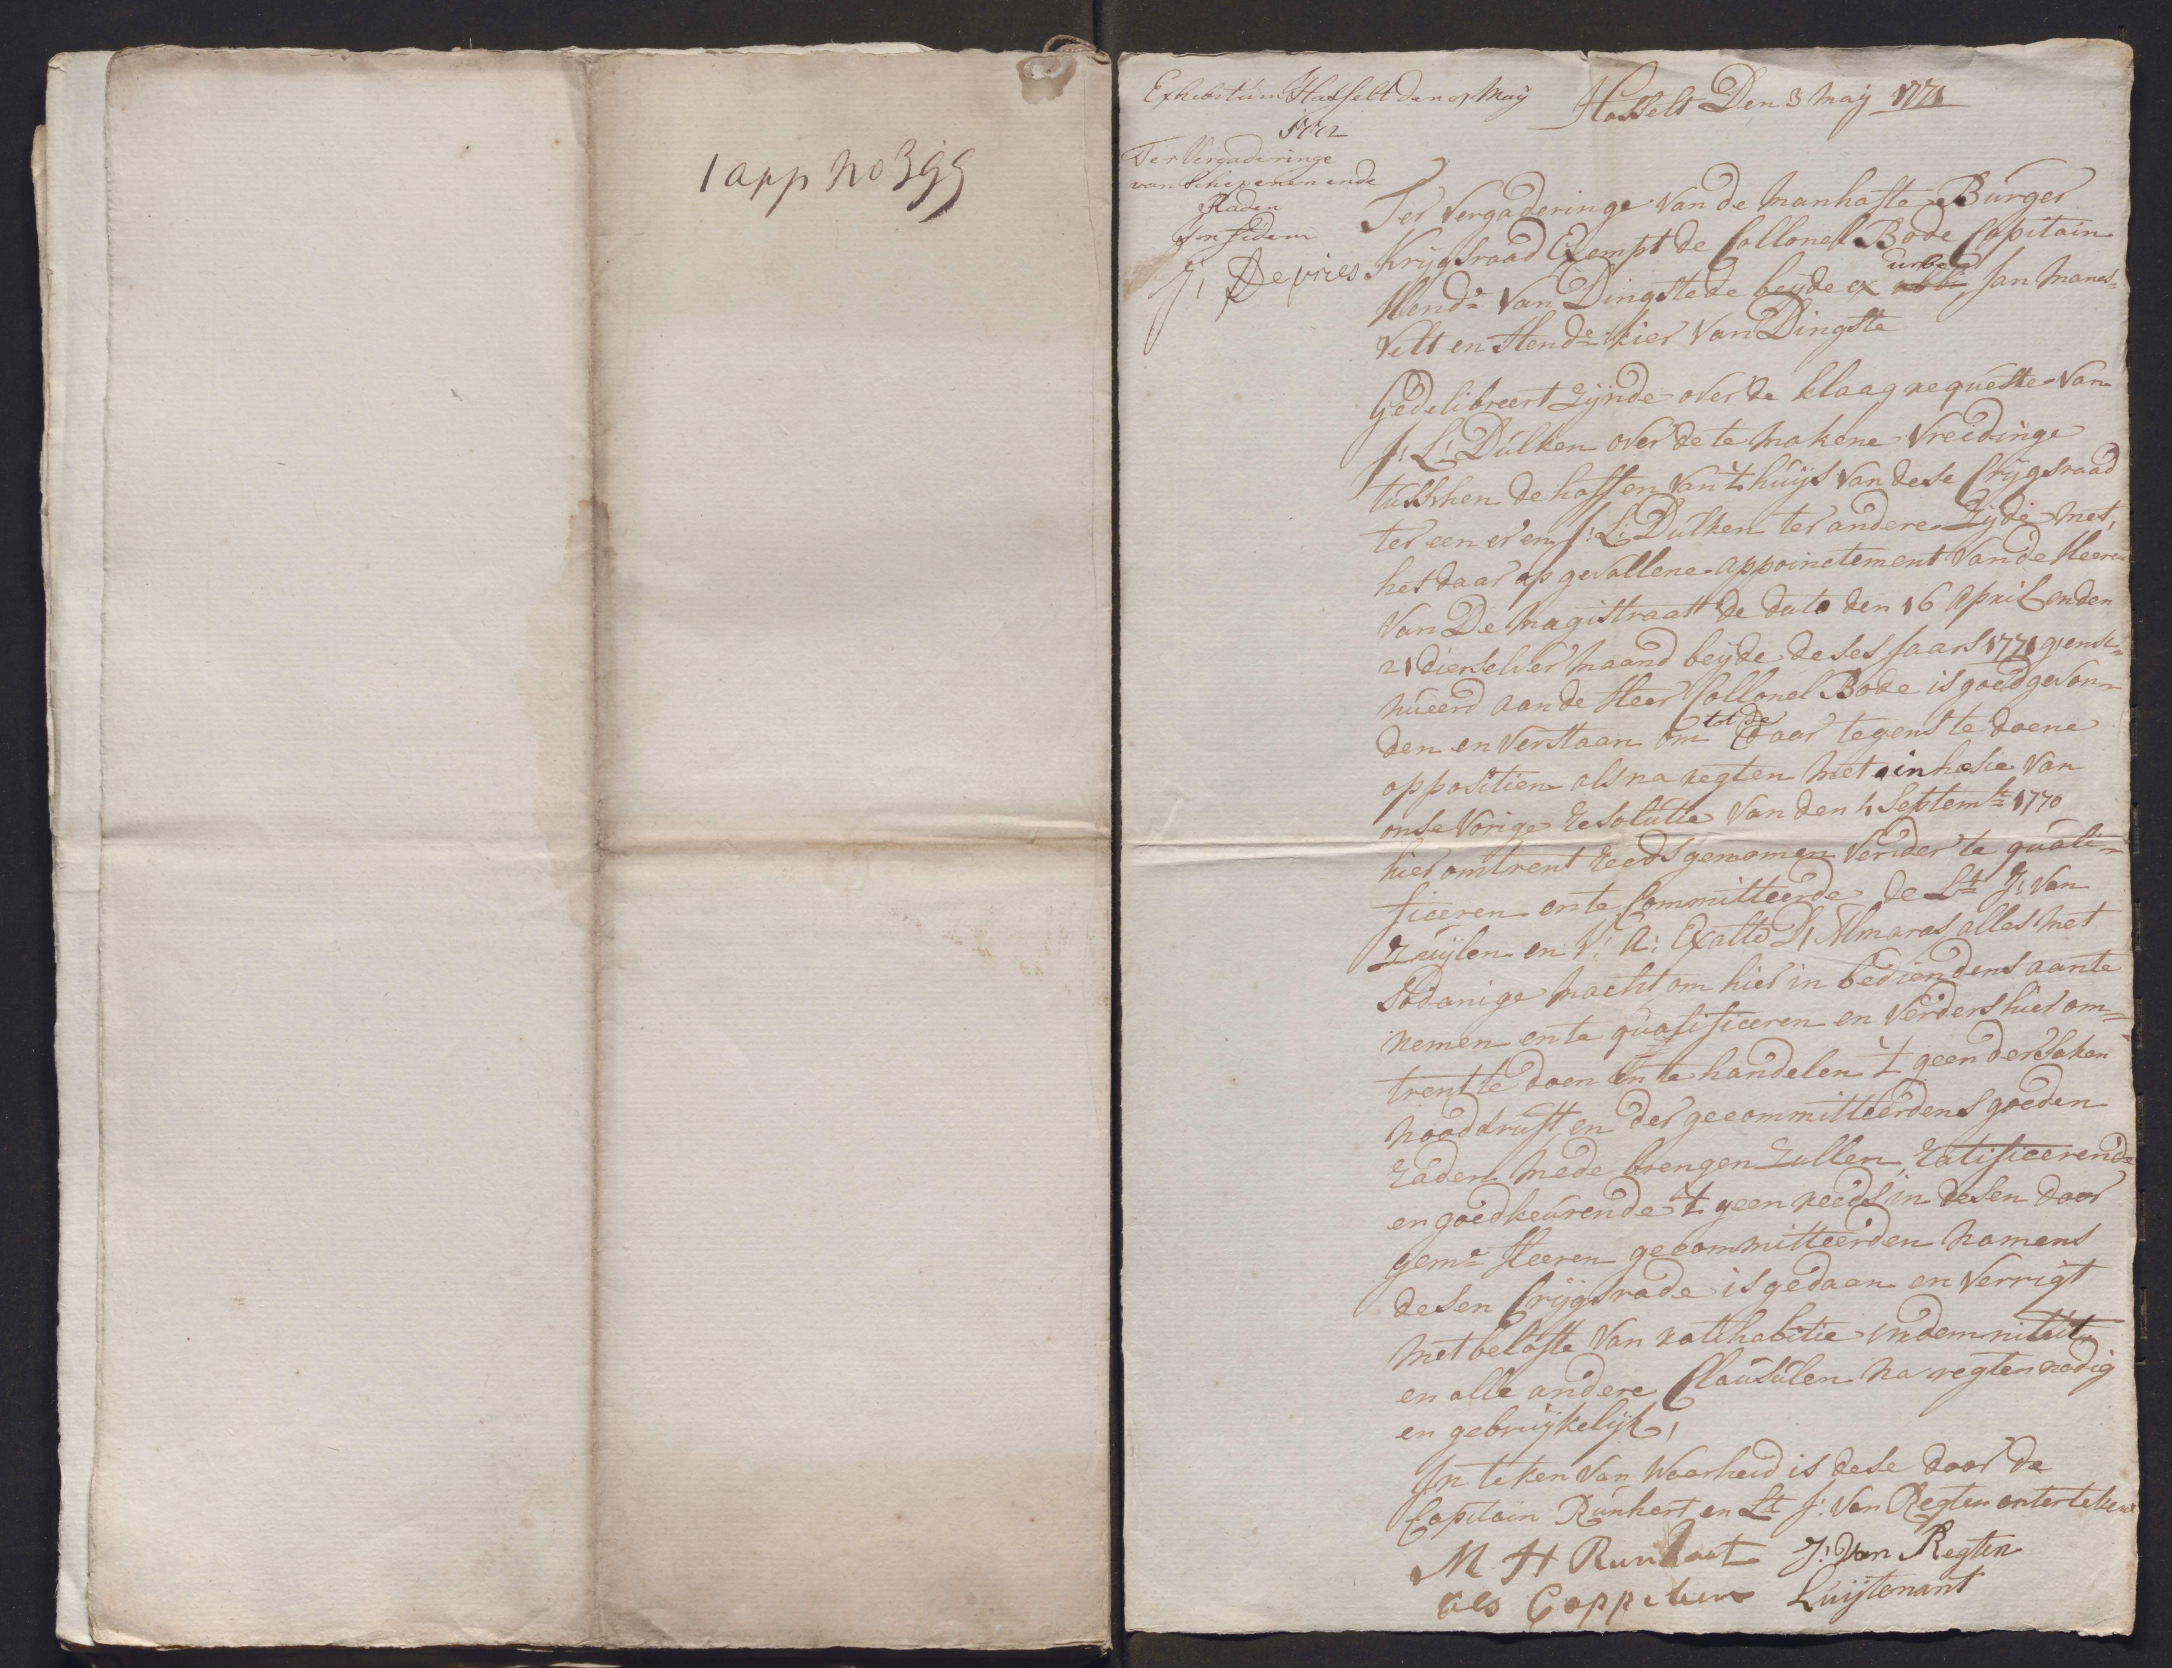 1 app no 399
Exhibitum Hasselt den 7 Maij
1772
Ter Vergaderinge
van Schepenen ende
Raden
In fidem
J: De vries
Hasselt Den 3 Maij 1771
Ter Vergaderinge van de Manhafte Burger
Krijgsraad Exempt de Collonel Bode Capitain
Hendk Van Dingstede beijde ex urbe Jan Manes-
velt en Hendk kier Van Dingste
Gedelibreert Zijnde over de klaag requeste van
J: L: Dulken over de te makene Vreedinge
tusschen de hoff en van 't huijs van dese Crijgsraad
ter een er en J: L: Dulken ter andere Zijde met,
het daar op gevallene appoinctement van de Heeren
Van De Magistraatt de dato den 16 April en den
21 dierselver maand beijde deses Jaars 1771 g'ensi-
nueerd aan de Heer Collonel Bode is goedgevon-
den en Verstaan om tot de daar tegens te doene
oppositien als na regten met inhæsie Van
onse Vorige resolutie Van den 4 Septembr 1770
hier omtrent reeds genomen Verder te quali-
ficeren en te Committeerde de Lt J: van
Zuijlen en V: A: Exalto D, Almaras alles met
Sodanige macht om hier in bediendens aan te
nemen en te qualificeren en Verders hier om-
trent te doen en te handelen 't geen der saken
nooddruft en der gecommitteerdens goeden
raden mede brengen Zullen, ratificeerende
en goedkeurende 't geen reeds in desen door
geme Heeren gecommitteerden namens
desen Crijgsrade is gedaan en Verrigt
met belofte Van ratihabitie indemniteit
en alle andere Clausulen na regten nodig
en gebruijkelijk,
In teken Van Waarheid is dese door de
Capitain Runhart en Lt J: Van Regten onterteken
M H Runhart J: Van Regten
als Cappetein Luijtenant